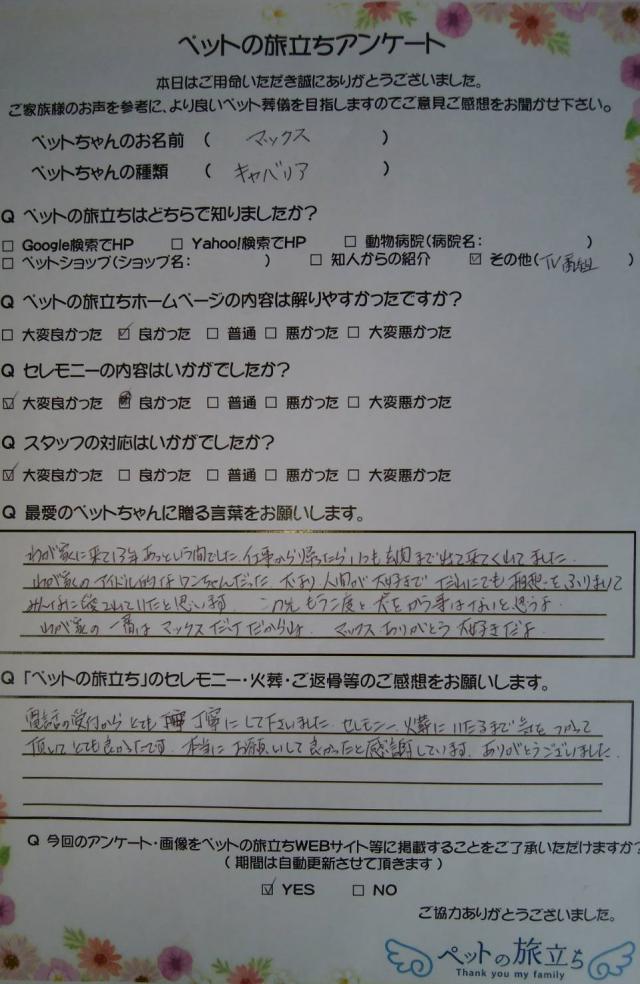 ペットの旅立ちアンケート
本日はご用命いただき誠にありがとうございました。
ご家族様のお声を参考に、より良いペット葬儀を目指しますのでご意見ご感想をお聞かせ下さい。
ペットちゃんのお名前 ( マックス )
ペットちゃんの種類 ( キャバリア )
Q ペットの旅立ちはどちらで知りましたか?
□ Google検索でHP □ Yahoo!検索でHP □ 動物病院(病院名: )
□ ペットショップ(ショップ名: ) □ 知人からの紹介 ☑ その他(TV番組 )
Q ペットの旅立ちホームページの内容は解りやすかったですか?
□ 大変良かった ☑ 良かった □ 普通 □ 悪かった □ 大変悪かった
Q セレモニーの内容はいかがでしたか?
☑ 大変良かった ■ 良かった □ 普通 □ 悪かった □ 大変悪かった
Q スタッフの対応はいかがでしたか?
☑ 大変良かった □ 良かった □ 普通 □ 悪かった □ 大変悪かった
Q 最愛のペットちゃんに贈る言葉をお願いします。
わが家に来て13年あっという間でした。仕事から帰ったらいつも玄関まで出て来てくれてました。
わが家のアイドル的なワンちゃんだった 犬より人間が大好きで だれにでも愛想をふりまいて
みんなに愛されていたと思います。 この先もう二度と犬をかう事はないと思うよ
わが家の一番は マックスだけだからね。 マックス ありがとう 大好きだよ
Q 「ペットの旅立ち」のセレモニー・火葬・ご返骨等のご感想をお願いします。
電話の受付から とても 丁寧にして下さいました。セレモニー、火葬にいたるまで気をつかって
頂いてとても良かったです。本当に お願いして良かったと感謝しています。ありがとうございました。
Q 今回のアンケート・画像をペットの旅立ちWEBサイト等に掲載することをご了承いただけますか?
( 期間は自動更新させて頂きます )
☑ YES □ NO
ご協力ありがとうございました。
ペットの旅立ち
Thank you my family